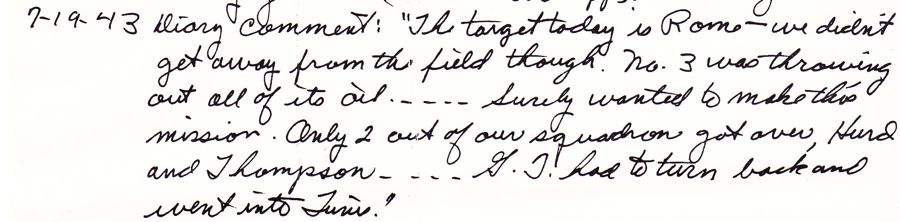 7-19-43 Diary Comment: "The target today is Rome — we didn't
get away from the field though. No. 3 was throwing
out all of its oil. ----- Surely wanted to make this
mission. Only 2 out of our squadron got over, Hurd
and Thompson ----- G. T. had to turn back and
went into Tunis."